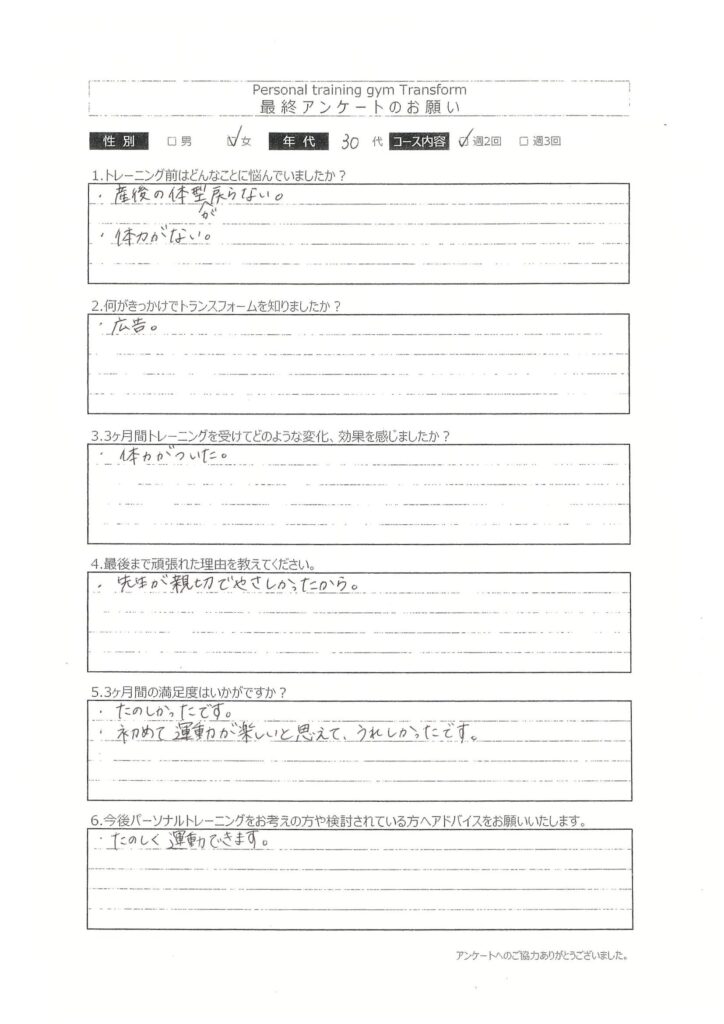 Personal training gym Transform
最終アンケートのお願い
性別 □男 ☑女 年代 30代 コース内容 ☑週2回 □週3回
1.トレーニング前はどんなことに悩んでいましたか？
・産後の体型が戻らない。
・体力がない。
2.何がきっかけでトランスフォームを知りましたか？
・広告。
3.3ヶ月間トレーニングを受けてどのような変化、効果を感じましたか？
・体力がついた。
4.最後まで頑張れた理由を教えてください。
・先生が親切でやさしかったから。
5.3ヶ月間の満足度はいかがですか？
・たのしかったです。
・初めて運動が楽しいと思えて、うれしかったです。
6.今後パーソナルトレーニングをお考えの方や検討されている方へアドバイスをお願いいたします。
・たのしく運動できます。
アンケートへのご協力ありがとうございました。